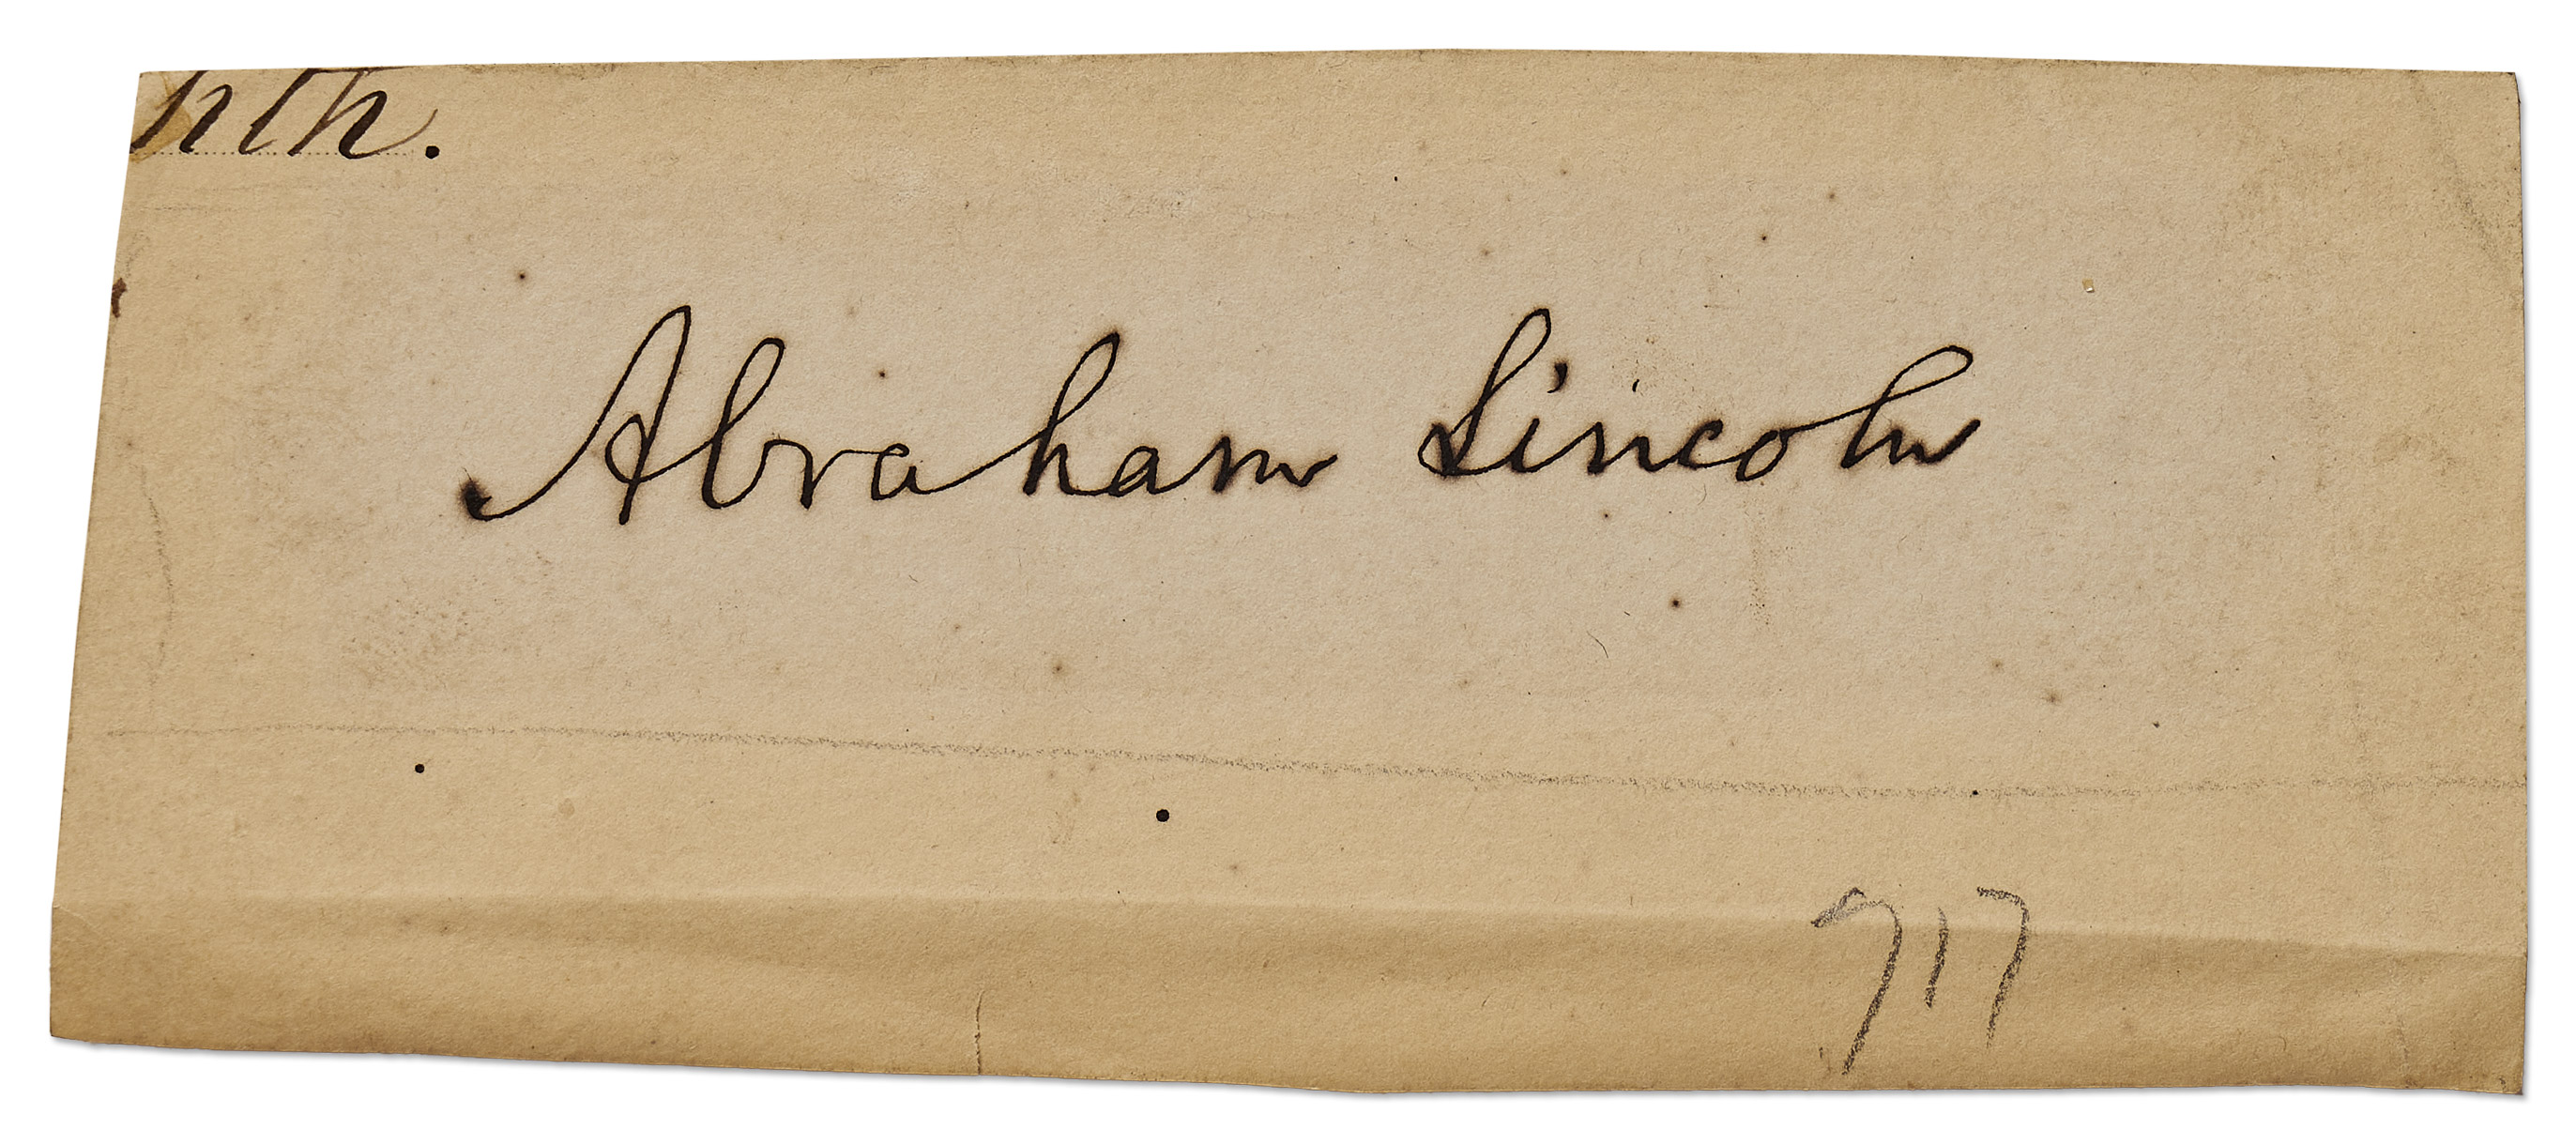 nth.
Abraham Lincoln
717